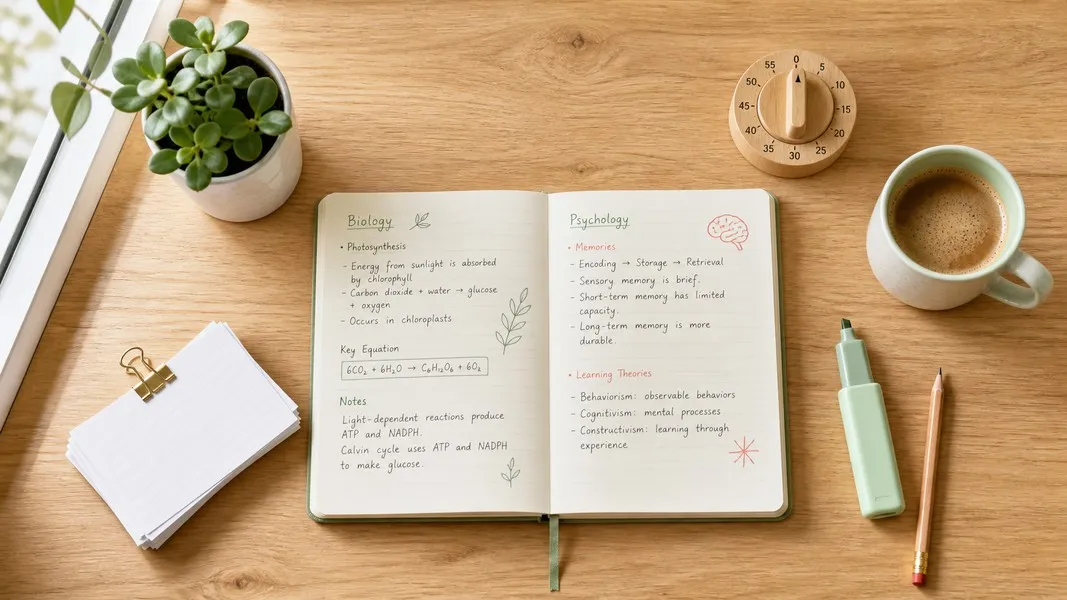 55 0 5
50 10
45 15
40 20
35 30 25
Biology
• Photosynthesis
- Energy from sunlight is absorbed
by chlorophyll
- Carbon dioxide + water → glucose
+ oxygen
- Occurs in chloroplasts
Key Equation
6CO₂ + 6H₂O → C₆H₁₂O₆ + 6O₂
Notes
Light-dependent reactions produce
ATP and NADPH.
Calvin cycle uses ATP and NADPH
to make glucose.
Psychology
• Memories
- Encoding → Storage → Retrieval
- Sensory memory is brief.
- Short-term memory has limited
capacity.
- Long-term memory is more
durable.
• Learning Theories
- Behaviorism: observable behaviors
- Cognitivism: mental processes
- Constructivism: learning through
experience.